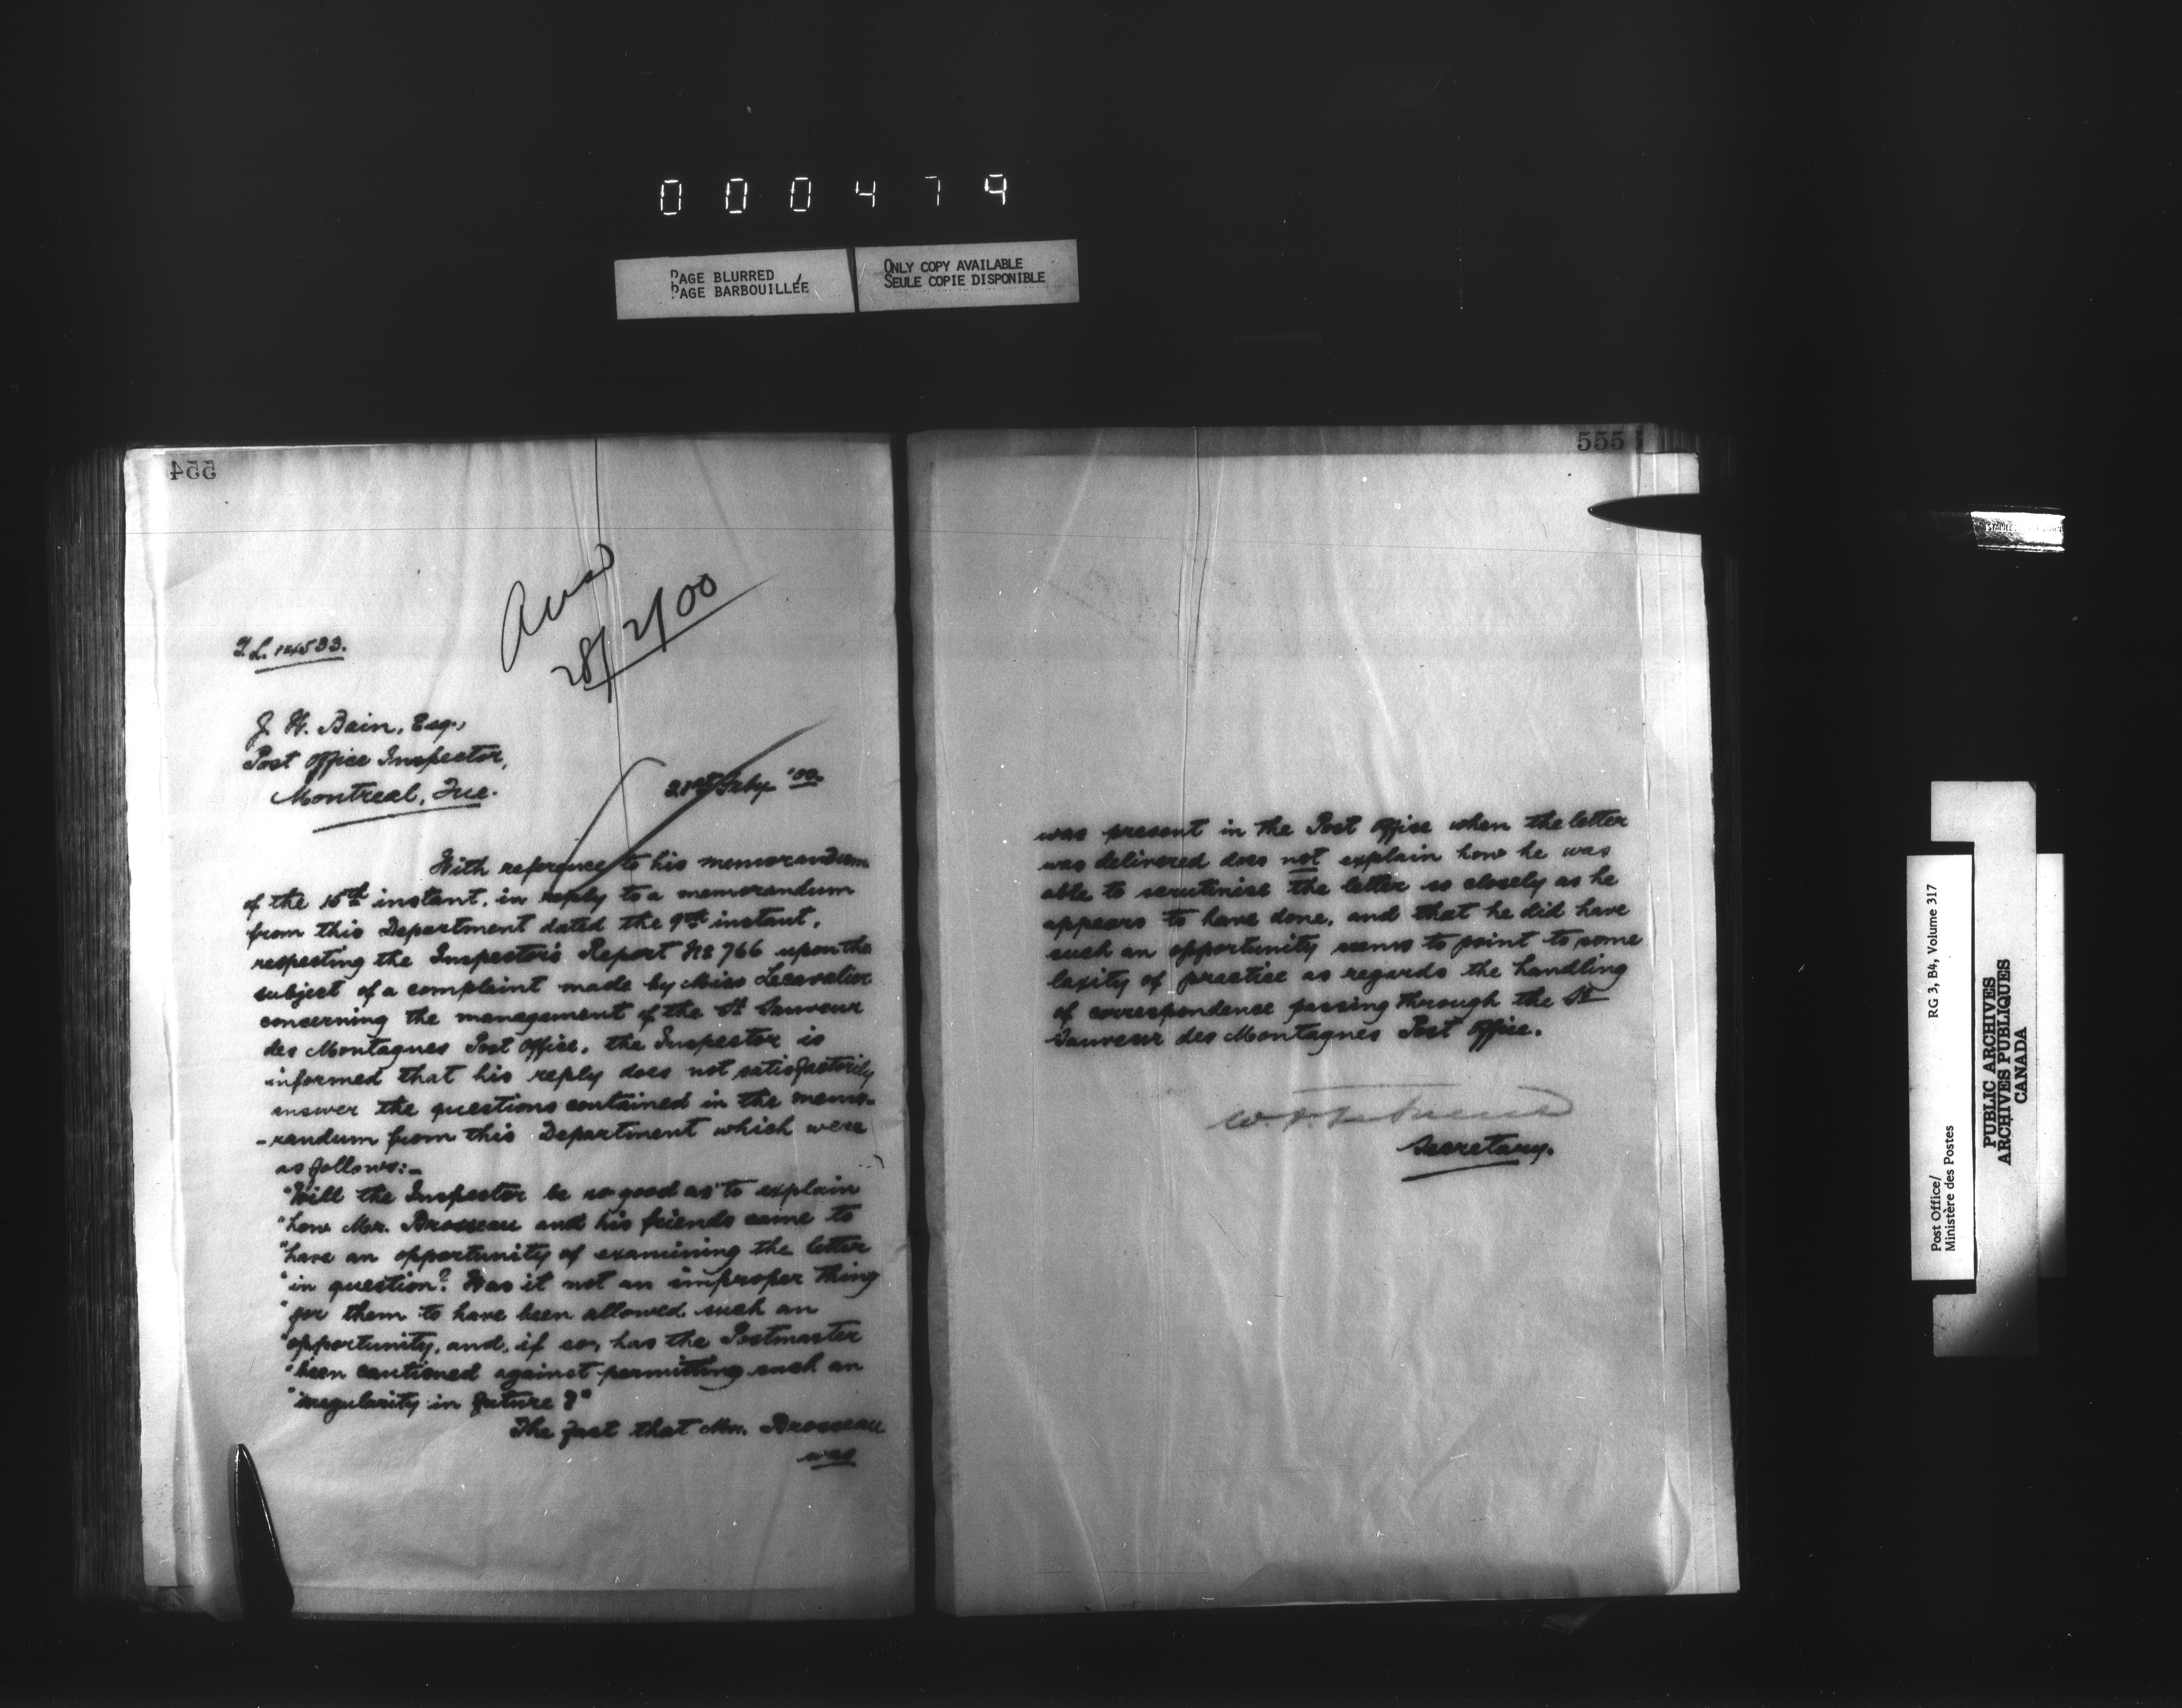 000479
PAGE BLURRED
PAGE BARBOUILLÉE
ONLY COPY AVAILABLE
SEULE COPIE DISPONIBLE
554
28/2/00
J. H. Bain, Esq.,
Post Office Inspector,
Montreal, Que.
21st Feby '00.
With reference to his memorandum
of the 15th instant, in reply to a memorandum
from this Department dated the 9th instant,
respecting the Inspector's Report No 766 upon the
subject of a complaint made by Miss Lecavelier
concerning the management of the St Sauveur
des Montagnes Post Office, the Inspector is
informed that his reply does not satisfactorily
answer the questions contained in the memo-
-randum from this Department which were
as follows:-
"Will the Inspector be so good as to explain
"how Mr. Brosseau and his friends came to
"have an opportunity of examining the letter
"in question? Was it not an improper thing
"for them to have been allowed such an
"opportunity, and, if so, has the Postmaster
"been cautioned against permitting such an
"irregularity in future?"
The fact that Mr. Brosseau
was
555
was present in the Post Office when the letter
was delivered does not explain how he was
able to scrutinise the letter so closely as he
appears to have done, and that he did have
such an opportunity seems to point to some
laxity of practice as regards the handling
of correspondence passing through the St
Sauveur des Montagnes Post Office.
Secretary.
Post Office/
Ministère des Postes
RG 3, B4, Volume 317
PUBLIC ARCHIVES
ARCHIVES PUBLIQUES
CANADA